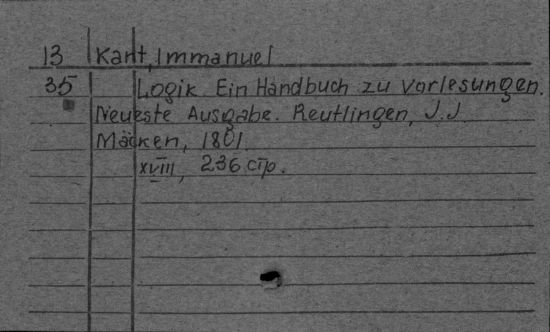 13 Kant, Immanuel
35 Logik. Ein Handbuch zu Vorlesungen.
Neueste Ausgabe. Reutlingen, J.J.
Mäcken, 1801
XVIII, 236 стр.